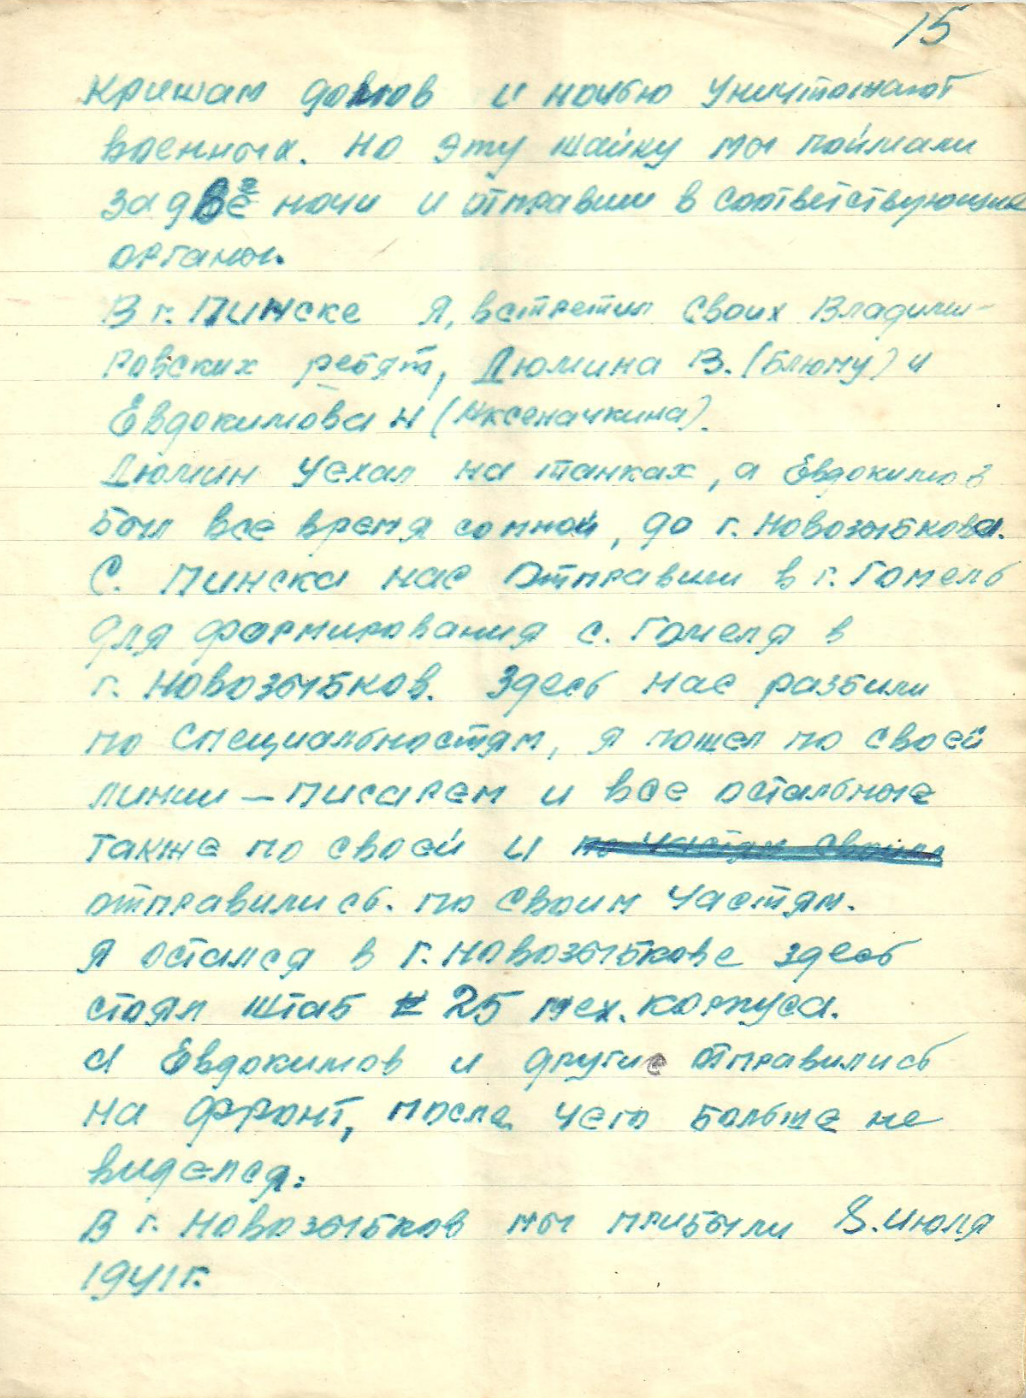 15
Кришам домов и ночью уничтожают
военных. Но эту шайку мы поймали
за две ночи и отправили в соответствующие
органы.
В г. Пинске Я, встретил своих Владими-
ровских ребят, Дюмина В. (Блюму) и
Евдокимова Н (Аксеначкина).
Дюмин уехал на танках, а Евдокимов
был все время сомной, до г. Новозыбкова.
С. Пинска нас отправили в г. Гомель
для формирования с. Гомеля в
г. Новозыбков. Здесь нас разбили
по специальностям, я пошел по своей
линии – писарем и все остальные
также по своей и по частям своим
отправились. по своим частям.
Я остался в г. Новозыбкове здесь
стоял штаб 25 мех. корпуса.
А Евдокимов и другие отправились
на фронт, после чего больше не
виделся.
В г. Новозыбков мы прибыли 8. июля
1941 г.